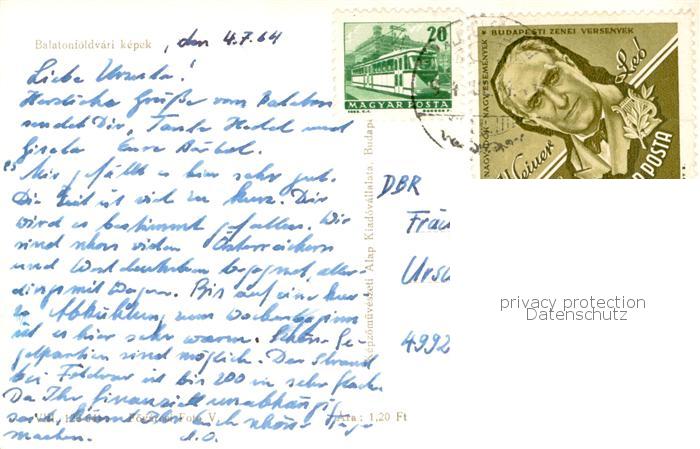 Balatonföldvári képek , den 4.7.64
Liebe Ursula!
Herzliche Grüße vom Balaton
sendet Dir, Tante Hedel und
Gisela Eure Bärbel.
Mir gefällt es hier sehr gut.
Die Zeit ist viel zu kurz. Dir
wird es bestimmt gefallen. Wir
sind schon vielen Österreichern
und Westdeutschen begegnet, aller-
dings mit Wagen. Bis auf eine kur-
ze Abkühlung zum Wochenbeginn
ist es hier sehr warm. Schöne Se-
gelpartien sind möglich. Der Strand
bei Földvar ist bis 200 m sehr flach.
Da Ihr finanziell unabhängig
schöne Tage
machen.
Ára: 1,20 Ft
Képzőművészeti Alap Kiadóvállalata, Budape
20
MAGYAR POSTA
BUDAPESTI ZENEI VERSENYEK
NAGYDÍJOK - NAGYESEMÉNYEK
Leó
Weiner
POSTA
DBR
Fräu
Ursu
4992
privacy protection
Datenschutz